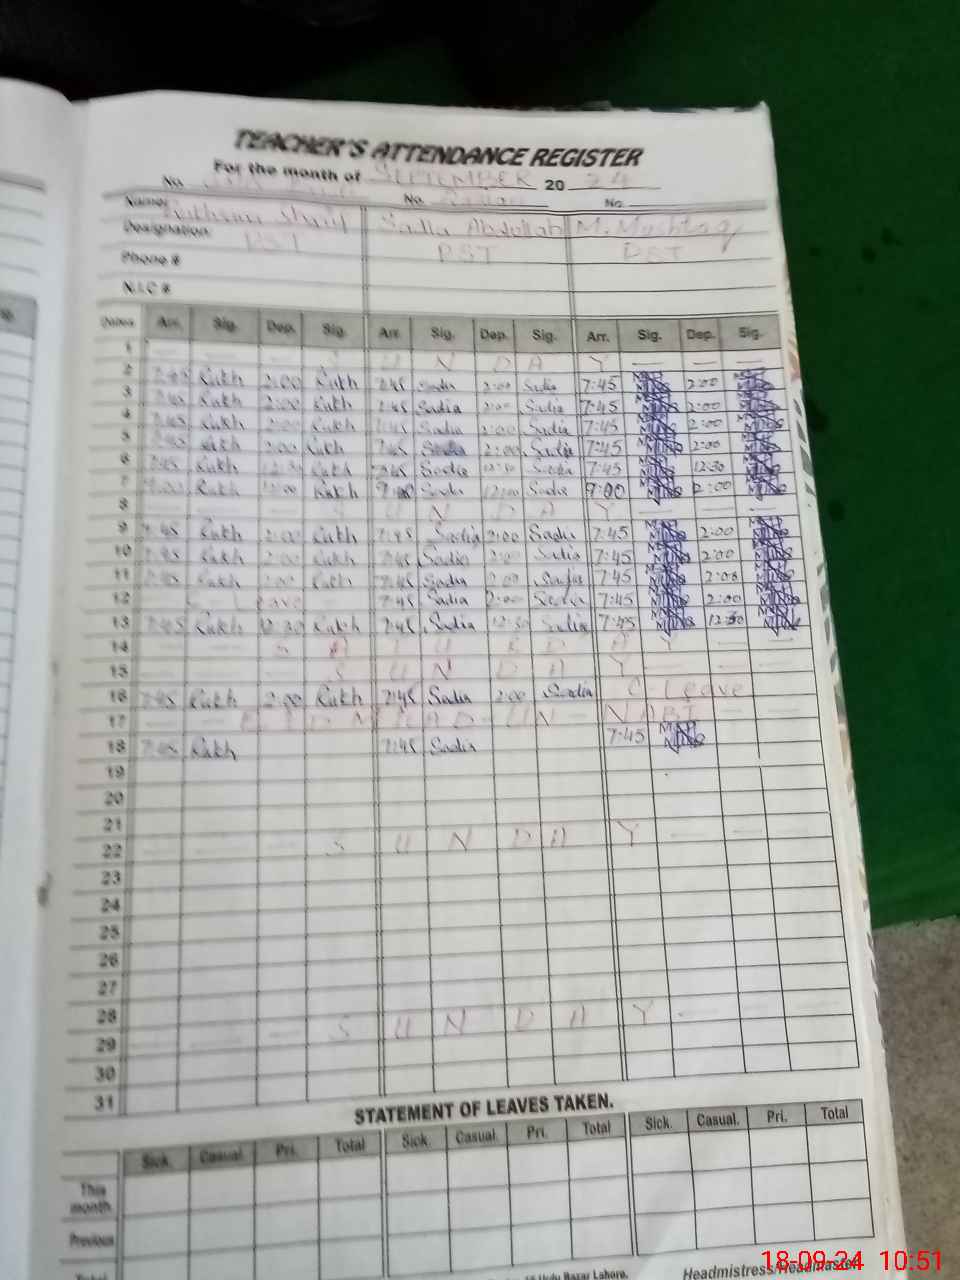 TEACHER'S ATTENDANCE REGISTER
For the month of SEPTEMBER 20 24
No. No. No.
Name: Sharif Sadia Abdullah M. Mushtaq
Designation: PST PST PST
Phone #
N.I.C #
Dates Arr. Sig. Dep. Sig. Arr. Sig. Dep. Sig. Arr. Sig. Dep. Sig.
1 — — — S U N D A Y — — —
2 7:45 Rukh 2:00 Rukh 7:45 Sadia 2:00 Sadia 7:45 2:00
3 7:45 Rukh 2:00 Rukh 7:45 Sadia 2:00 Sadia 7:45 2:00
4 7:45 Rukh 2:00 Rukh 7:45 Sadia 2:00 Sadia 7:45 2:00
5 7:45 Rukh 2:00 Rukh 7:45 Sadia 2:00 Sadia 7:45 2:00
6 7:45 Rukh 12:30 Rukh 7:45 Sadia 12:30 Sadia 7:45 12:30
7 9:00 Rukh 12:00 Rukh 9:00 Sadia 12:00 Sadia 9:00 12:00
8 — — — S U N D A Y — — —
9 7:45 Rukh 2:00 Rukh 7:45 Sadia 2:00 Sadia 7:45 2:00
10 7:45 Rukh 2:00 Rukh 7:45 Sadia 2:00 Sadia 7:45 2:00
11 7:45 Rukh 2:00 Rukh 7:45 Sadia 2:00 Sadia 7:45 2:00
12 — C Leave — 7:45 Sadia 2:00 Sadia 7:45 2:00
13 7:45 Rukh 12:30 Rukh 7:45 Sadia 12:30 Sadia 7:45 12:30
14 — — S A T U R D A Y — —
15 — — — S U N D A Y — — —
16 7:45 Rukh 2:00 Rukh 7:45 Sadia 2:00 Sadia C Leave
17 — — E I D M I L A D - U N — N A B I
18 7:45 Rukh 7:45 Sadia 7:45
19
20
21
22 — — — S U N D A Y — — —
23
24
25
26
27
28
29 — — — S U N D A Y — — —
30
31
STATEMENT OF LEAVES TAKEN.
Sick. Casual. Pri. Total Sick. Casual. Pri. Total Sick. Casual. Pri. Total
This month
Previous
Total
Urdu Bazar Lahore. Headmistress/Headmaster
18-09-24 10:51